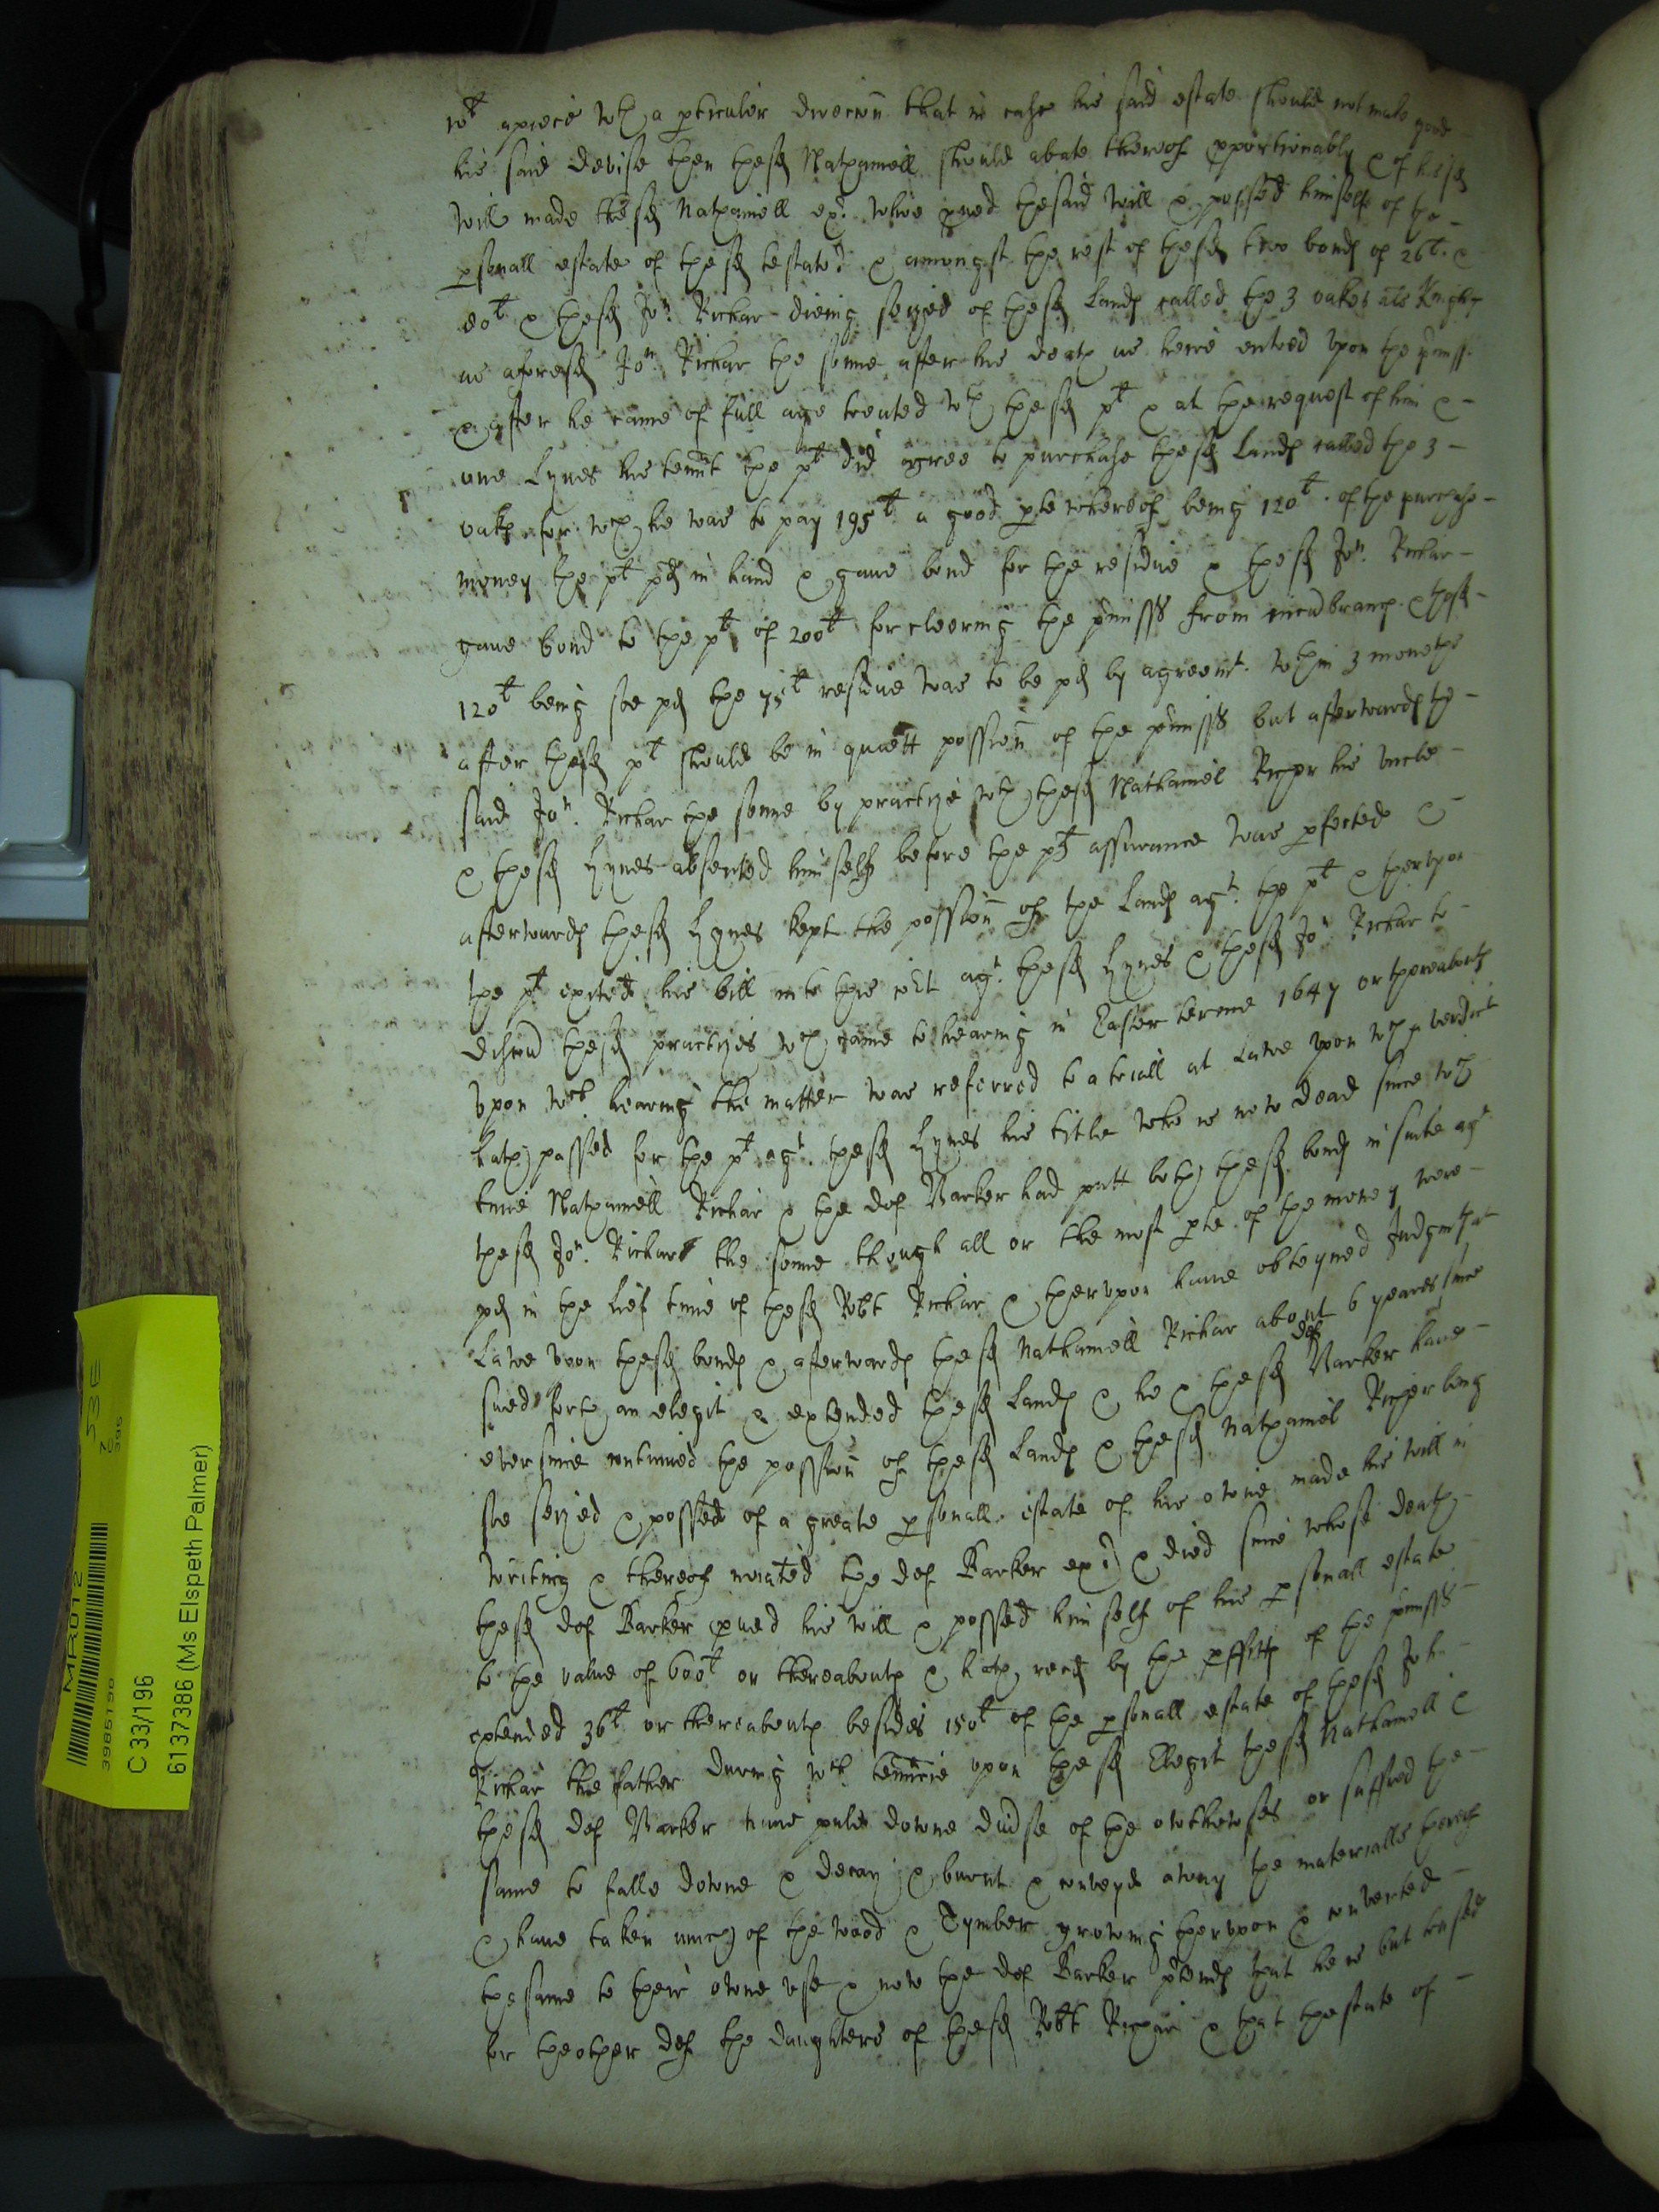 10l apiece wth a pticuler direccon that in case his said estate should not make good
his said devise then the sd Nathaniell should abate thereof pportionably & of his sd
will made the sd Nathaniell exr whoe pved the said will & possed himselfe of the
psonall estate of the sd testator & amongst the rest of the sd two bonds of 26l &
80l & the sd Jon Richar dieing seized of the sd Lands called the 3 oakes als Knights
as aforesd Jon Richar the sonne after his death as heire entred upon the pmiss
& after he came of full age treated wth the sd plt & at the request of him &
one Lynes his tennt the plt did agree to purchase the sd Lands called the 3
oaks for wch he was to pay 195l a good pte whereof being 120l of the purchase
money the plt pd in hand & gave bond for the residue & the sd Jon Richar
gave bond to the plt of 200l for cleering the pmisss from incumbrances & the sd
120l being soe pd the 75l residue was to be pd by agreemt wthin 3 moneths
after the sd plt should be in quiett possion of the pmisss but afterwards the
said Jon Richar the sonne by practize wth the sd Nathaniel Richar his uncle
& the sd Lynes absented himself before the plts assurance was pfected &
afterwards the sd Lynes kept the possion of the Lands agt the plt & thereupon
the plt exited his bill into this Court agt the sd Lynes & the sd Jon Richar to
discover the sd practizes wch came to hearing in Easter terme 1647 or thereabouts
Upon wch hearing the matter was referred to a triall at Lawe upon wch a verdict
hath passed for the plt agt the sd Lynes his title who is now dead since wch
time Nathaniell Richar & the def Barker had putt both the sd bonds in suite agt
the sd Jon Richar the sonne though all or the most pte of the money were
pd in the lief time of the sd Robt Richar & thereupon have obteyned Judgmt at
Lawe upon the sd bonds & afterwards the sd Nathaniell Richar about 6 yeares since
sued forth an elegit & extended the sd Lands & he & the sd def Barker have
ever since continued the possion of the sd Lands & the sd Nathaniel Richar being
soe seized & possed of a greate psonall estate of his owne made his will in
writing & thereof mated the def Barker exr & died since whose death
the sd def Barker pved his will & possed himself of his psonall estate
to the value of 600l or thereabouts & hath recd by the pffitts of the pmisss
extended 36l or thereabouts besides 150l of the psonall estate of the sd Jon
Richar the father during wch tennrie upon the sd Elegit the sd Nathaniell &
the sd def Barker have puld downe divse of the outhowses or suffred the
same to falle downe & decay & burnt & conveyd away the materialls thereof
& have taken much of the wood & Tymber growing thereupon & converted
the same to their owne use & now the def Barker ptends that he is but trusted
for the other def the daughters of the sd Robt Richar & that the state of
MR012
3985196
C 33/196
6137386 (Ms Elspeth Palmer)
53E